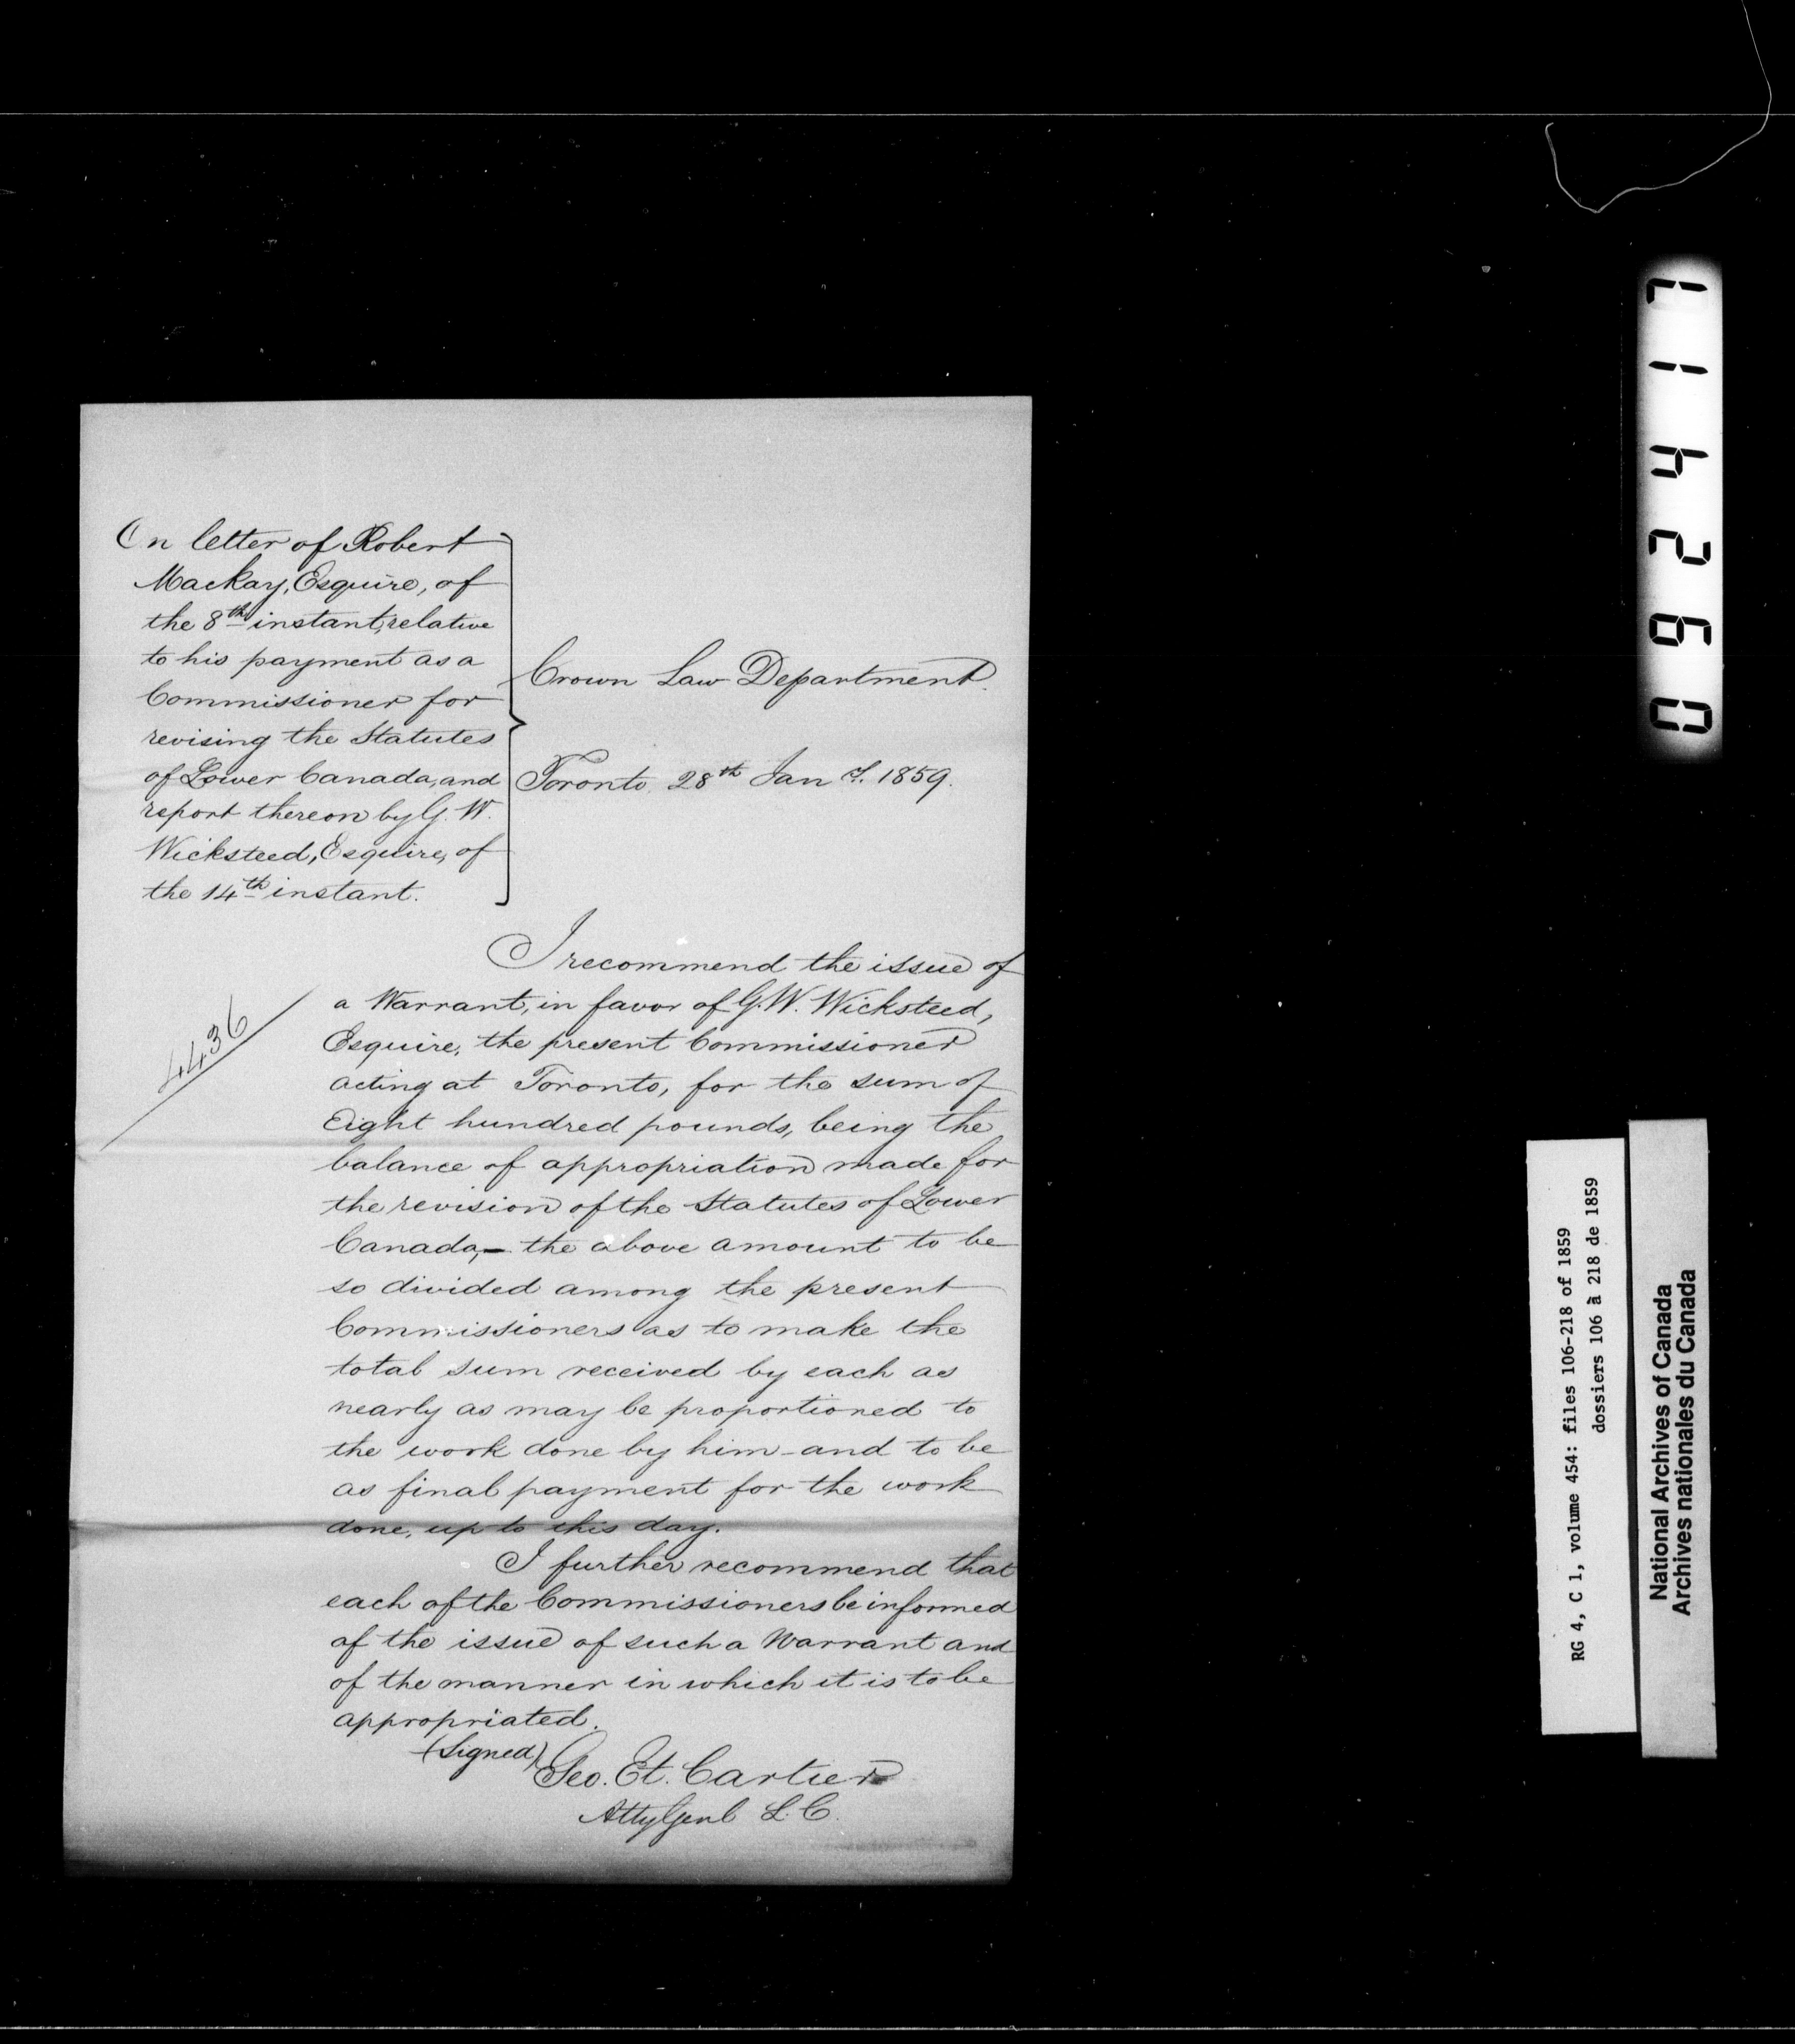 On letter of Robert
Mackay, Esquire, of
the 8th instant, relative
to his payment as a
Commissioner for
revising the Statutes
of Lower Canada, and
report thereon by G. W.
Wicksteed, Esquire, of
the 14th instant.
Crown Law Department.
Toronto, 28th Jany. 1859.
I recommend the issue of
a Warrant, in favor of G. W. Wicksteed,
Esquire, the present Commissioner
acting at Toronto, for the sum of
Eight hundred pounds, being the
balance of appropriation made for
the revision of the Statutes of Lower
Canada,- the above amount to be
so divided among the present
Commissioners as to make the
total sum received by each as
nearly as may be proportioned to
the work done by him - and to be
as final payment for the work
done, up to this day.
I further recommend that
each of the Commissioners be informed
of the issue of such a Warrant and
of the manner in which it is to be
appropriated.
(Signed) Geo. Et. Cartier
Atty Genl L. C.
4436
062417
RG 4, C 1, volume 454: files 106-218 of 1859
dossiers 106 à 218 de 1859
National Archives of Canada
Archives nationales du Canada